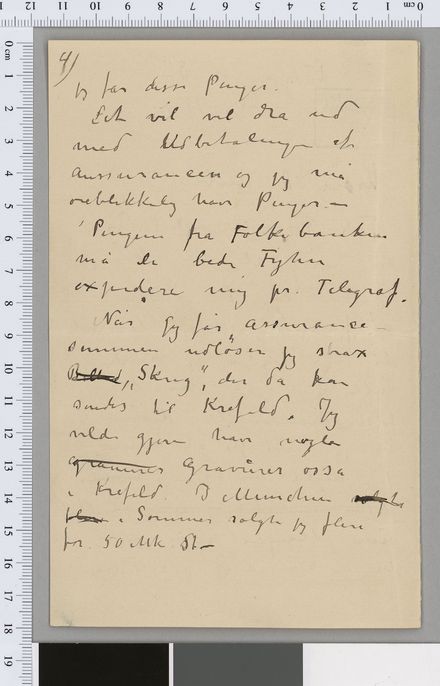 4)
jeg får disse Penger.
Det vil vel dra ud
med Udbetalingen af
assurancen og jeg må
øieblikkelig have Penger. —
Pengene fra Folkebanken
må De bede Fyhn
expedere mig pr. Telegraf.
Når jeg får assurance-
summen udløser jeg strax
"Skrig", der da kan
sendes til Krefeld. Jeg
vilde gjerne have nogle
Gravürer osså
i Krefeld. I München
i Sommer solgte jeg flere
for 50 Mk. St —